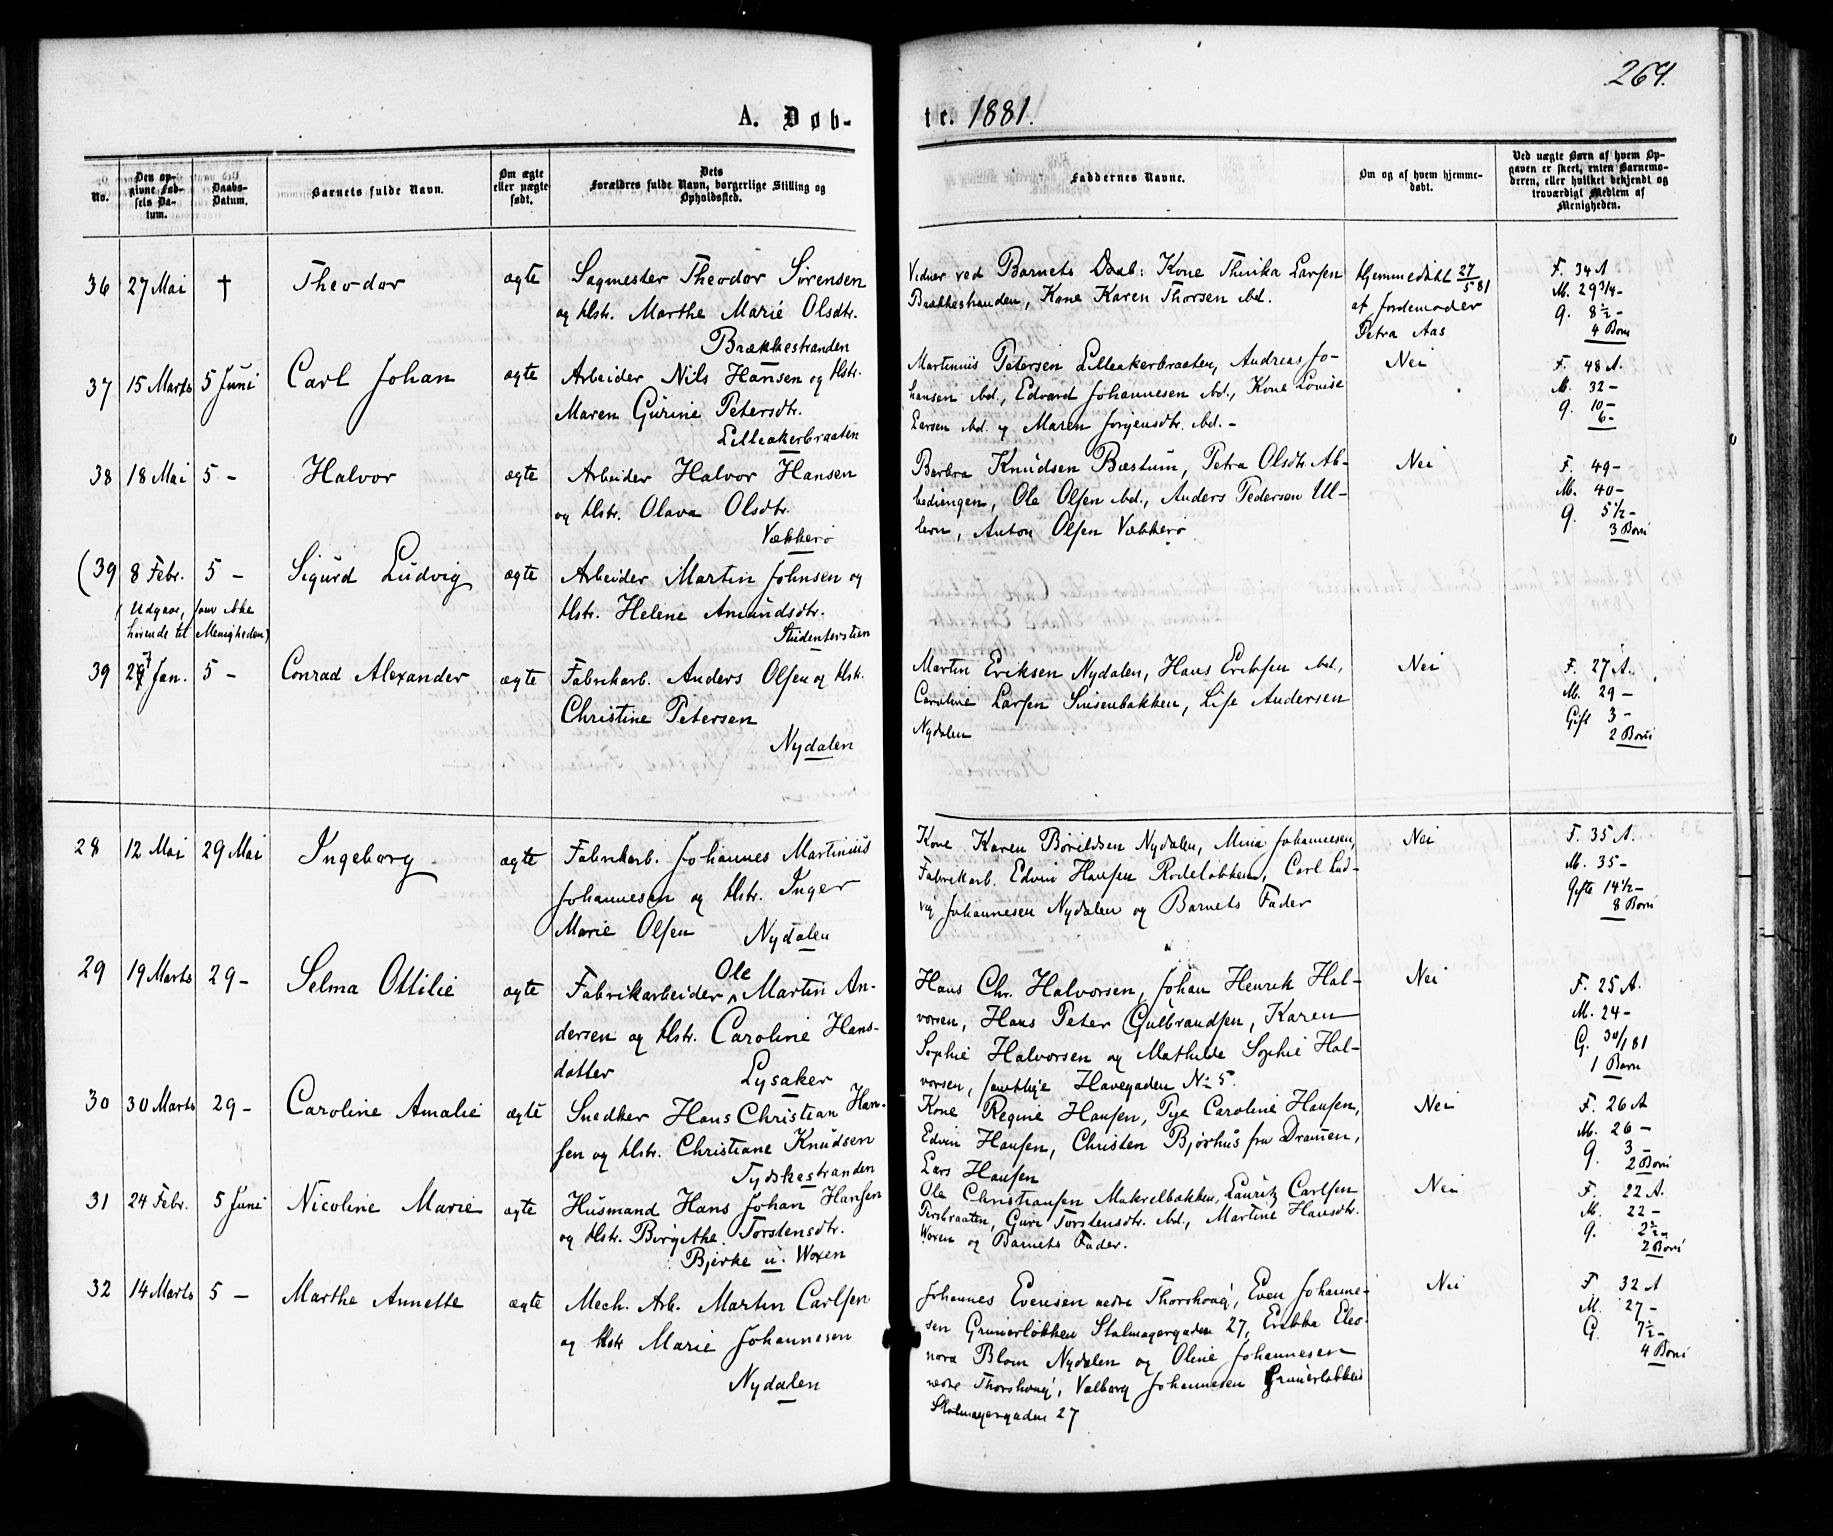 264.
A. Døb-
te. 1881.
No.
Den op-
givne Fød-
sels Da-
tum.
Daabs-
Datum.
Barnets fulde Navn.
Om ægte
eller uægte
født.
Dets
Forældres fulde Navn, borgerlige Stilling og
Opholdssted.
Faddernes Navne.
Om og af hvem hjemme-
døbt.
Ved uægte Børn af hvem Op-
gaven er skeet, enten Barnemo-
deren, eller hvilket bekjendt og
troværdigt Medlem af
Menigheden.
36 27 Mai † Theodor ægte
Sagmester Theodor Sørensen
og Hstr. Marthe Marie Olsdtr.
Brækkestranden
Vidner ved Barnets Daab: Kone Thrika Larsen
Brækkestranden, Kone Karen Thorsen ibd.
Hjemmedøbt 27/5 81
af Jordemoder
Petra Aas
F. 34 A
M. 29 3/4 -
G. 8 1/2 -
4 Born
37 15 Marts 5 Juni Carl Johan ægte
Arbeider Nils Hansen og Hstr.
Maren Gurine Petersdtr.
Lilleakerbraaten
Martinius Petersen Lilleakerbraaten, Andreas Jo-
hansen ibd., Edvard Johannesen ibd., Kone Lovise
Larsen ibd. og Maren Jørgensdtr. ibd. -
Nei
F. 48 A.
M. 32 -
G. 10 -
6 -
38 18 Mai 5 - Halvor ægte
Arbeider Halvor Hansen
og Hstr. Olava Olsdtr.
Vækkerø
Barbra Knudsen Bæstum, Petra Olsdtr. Ab-
bedüngen, Ole Olsen ibd., Anders Pedersen Ul-
lern, Anton Olsen Vækkerø
Nei
F. 49 -
M. 40 -
G. 5 1/2 -
3 Born
(39 8 Febr. 5 - Sigurd Ludvig ægte
(Udgaar, som ikke
hørende til Menigheden)
Arbeider Martin Johnsen og
Hstr. Helene Amundsdtr.
Studenterstien
39 27 Jan. 5 - Conrad Alexander ægte
Fabrikarb. Anders Olsen og Hstr.
Christine Petersen
Nydalen
Martin Eriksen Nydalen, Hans Eriksen ibd.,
Caroline Larsen Sinsenbakken, Lise Andersen
Nydalen
Nei
F. 27 A.
M. 29 -
Gift 3 -
2 Born
28 12 Mai 29 Mai Ingeborg ægte
Fabrikarb. Johannes Martinius
Johannesen og Hstr. Inger
Marie Olsen Nydalen
Kone Karen Børildsen Nydalen, Mina Johannesen,
Fabrikarb. Edvin Hansen Rodeløkken, Carl Lud-
vig Johannesen Nydalen og Barnets Fader
Nei
F. 35 A.
M. 35 -
Gifte 14 1/2 -
8 Born
29 19 Marts 29 - Selma Ottilie ægte
Fabrikarbeider Ole Martin An-
dersen og Hstr. Caroline Hans-
datter Lysaker
Hans Chr. Halvorsen, Johan Henrik Hal-
vorsen, Hans Peter Gulbrandsen, Karen
Sophie Halvorsen og Mathilde Sophie Hal-
vorsen, samtlige Havegaden No 5.
Nei
F. 25 A.
M. 24 -
G. 30/1 81
1 Barn
30 30 Marts 29 - Caroline Amalie ægte
Snedker Hans Christian Han-
sen og Hstr. Christiane Knudsen
Tydskestranden
Kone Regine Hansen, Pige Caroline Hansen,
Edvin Hansen, Christen Bjørhus fra Dramen,
Lars Hansen
Nei
F. 26 A
M. 26 -
G. 3 -
2 Born
31 24 Febr. 5 Juni Nicoline Marie ægte
Husmand Hans Johan Hansen
og Hstr. Birgithe Torstensdtr.
Bjerke u. Woxen
Ole Christiansen Makrelbakken, Lauritz Carlsen
Persbraaten, Guri Torstensdtr. ibd., Martine Hansdtr.
Woxen og Barnets Fader.
Nei
F. 22 A.
M. 22 -
G. 2 1/2 -
2 Born
32 14 Marts 5 - Marthe Annette ægte
Mech. Arb. Martin Carlsen
og Hstr Marie Johannesen
Nydalen
Johannes Evensen nedre Thorshoug, Even Johanne-
sen Grunerløkken Stolmagergaden 27, Erikka Eleo-
nora Blom Nydalen og Oline Johannesen
nedre Thorshoug, Valborg Johannesen Grunerløkken
Stolmagergaden 27
Nei
F. 32 A
M. 27 -
G. 7 1/2 -
4 Born